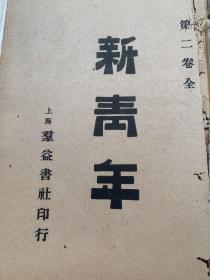 第二卷全
新青年
上海 羣益書社印行